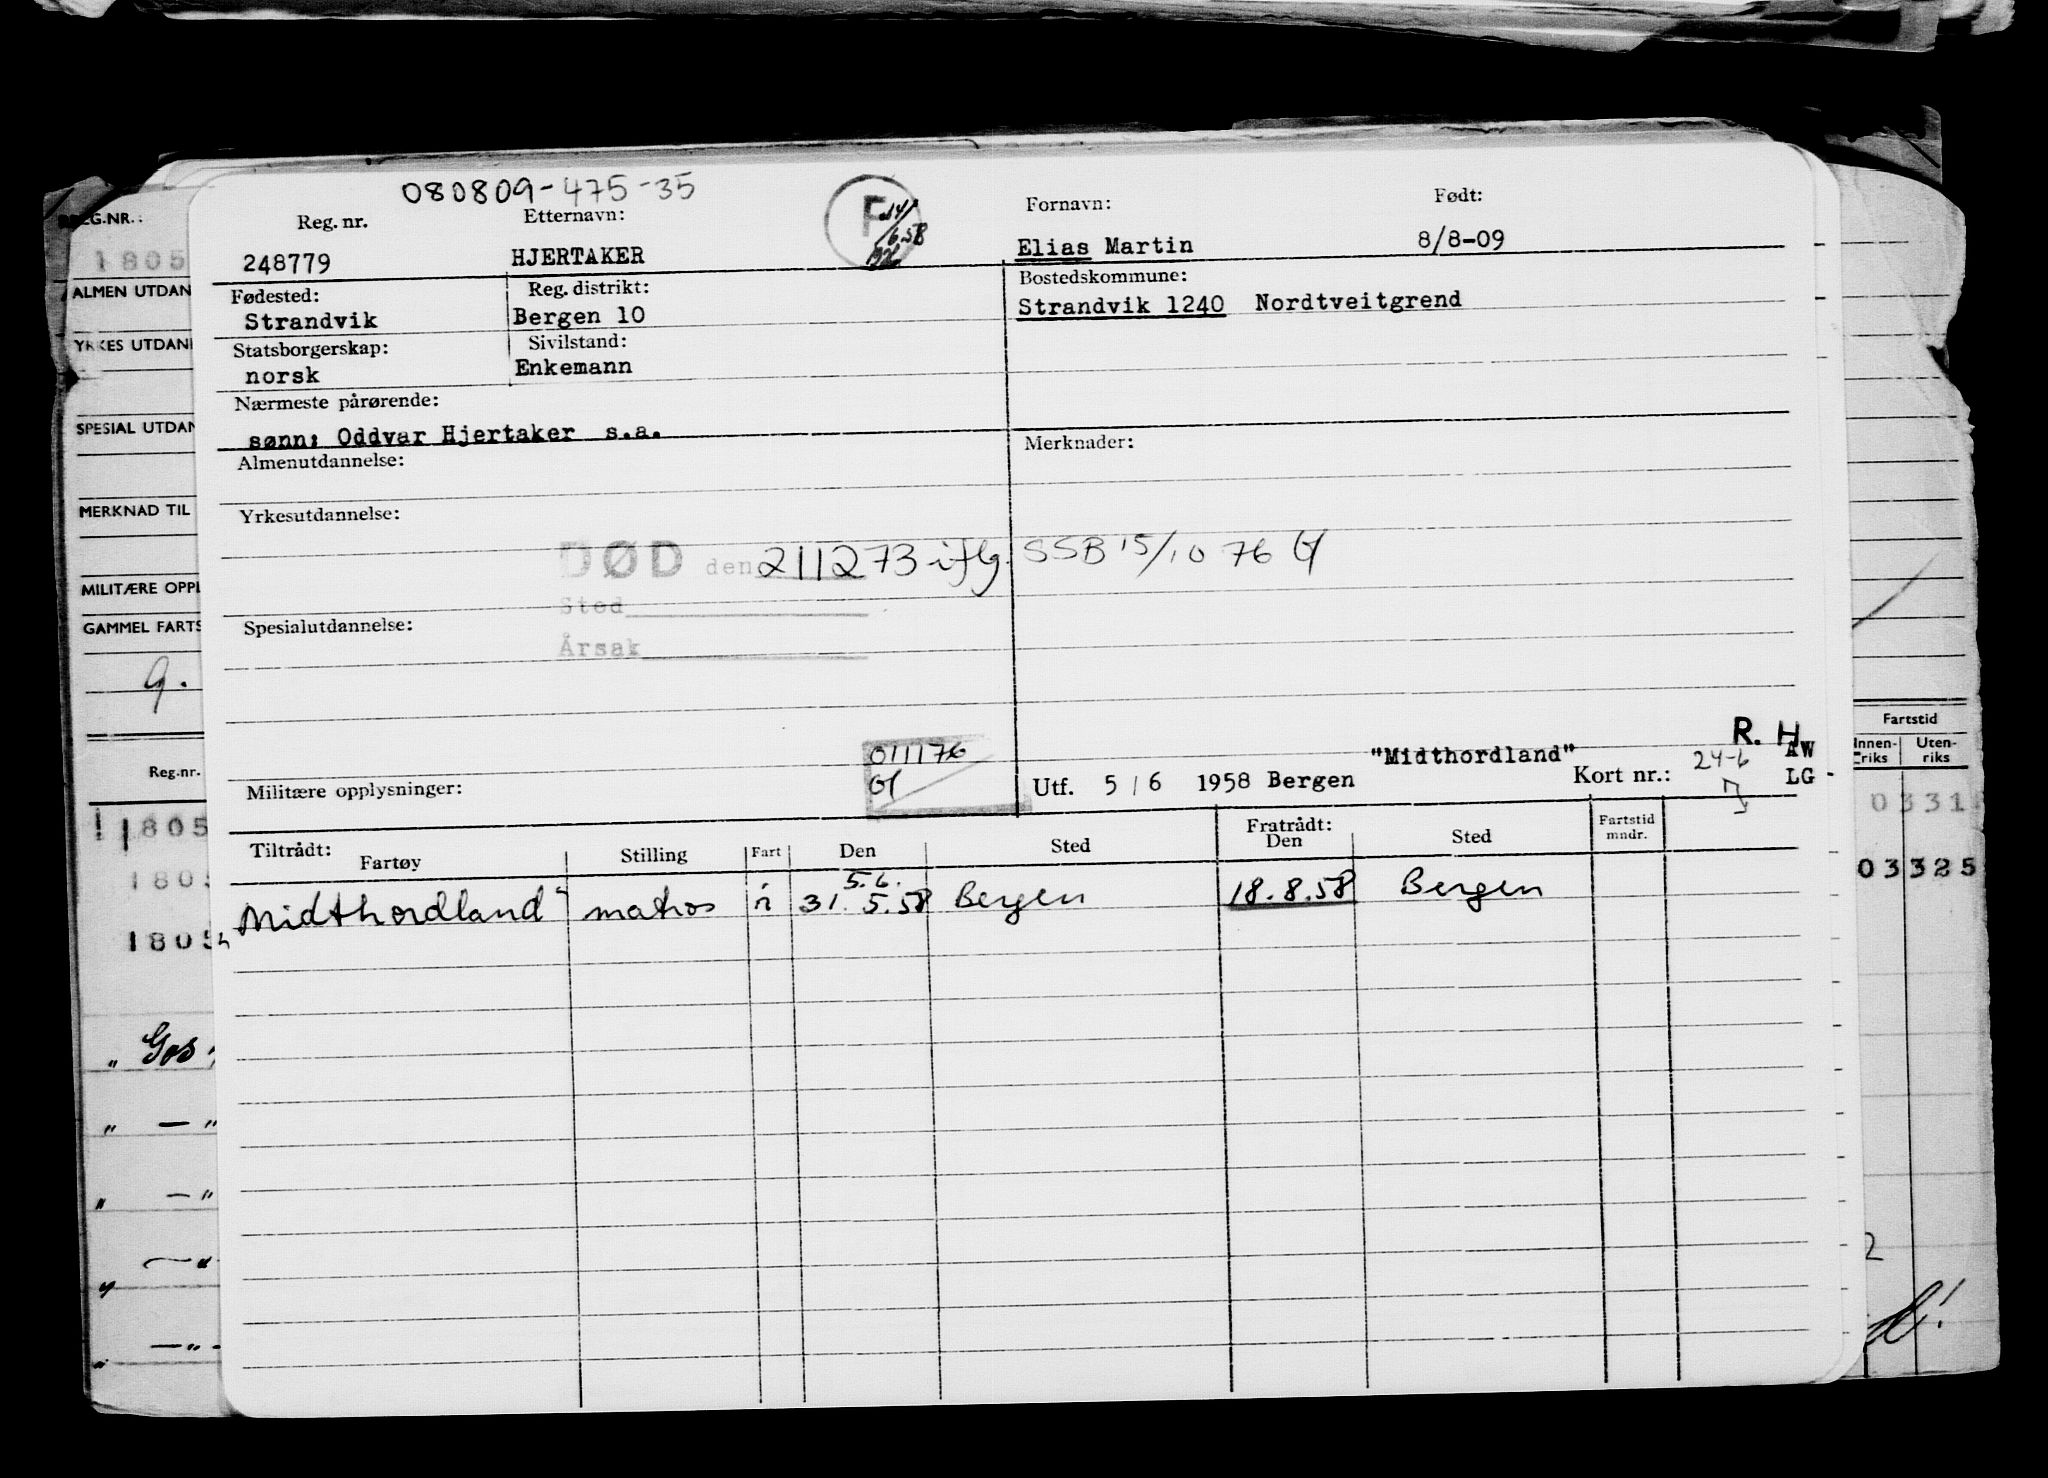 080809-475-35
Reg. nr. Etternavn: Fornavn: Født:
F 14/6.58
248779 HJERTAKER Elias Martin 8/8-09
Fødested: Reg. distrikt: Bostedskommune:
Strandvik Bergen 10 Strandvik 1240 Nordtveitgrend
Statsborgerskap: Sivilstand:
norsk Enkemann
Nærmeste pårørende:
sønn: Oddvar Hjertaker s.a.
Almenutdannelse: Merknader:
Yrkesutdannelse:
DØD den 211273 iflg. SSB 15/10 76
Sted
Spesialutdannelse:
Årsak
011176
R. H.
"Midthordland" 24-6 AW
Militære opplysninger: Utf. 5/6 1958 Bergen Kort nr.: LG
Tiltrådt: Fratrådt:
Fartøy Stilling Fart Den Sted Den Sted Fartstid mndr.
5.6.
Midthordland" matros i 31.5.58 Bergen 18.8.58 Bergen
REG.NR.:
1805
ALMEN UTDAN
YRKES UTDAN
SPESIAL UTDAN
MERKNAD TIL
MILITÆRE OPPL
GAMMEL FARTS
9.
Reg.nr.
1805
1805
1805
" Gos
" — "
" — "
" — "
" — " -
Fartstid
Innen-riks Uten-riks
0331
03325
2